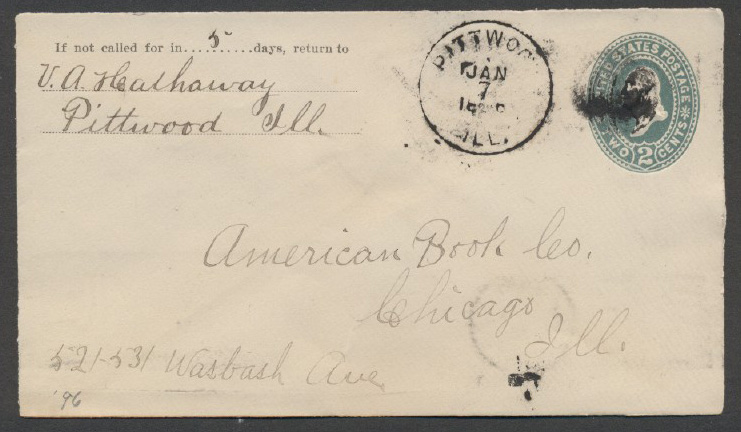 If not called for in 5 days, return to
V. A. Hathaway
Pittwood Ill.
PITTWOO
JAN
7
ILL.
UNITED STATES POSTAGE
TWO 2 CENTS
American Book Co.
Chicago
Ill.
521-531 Wasbash Ave
'96